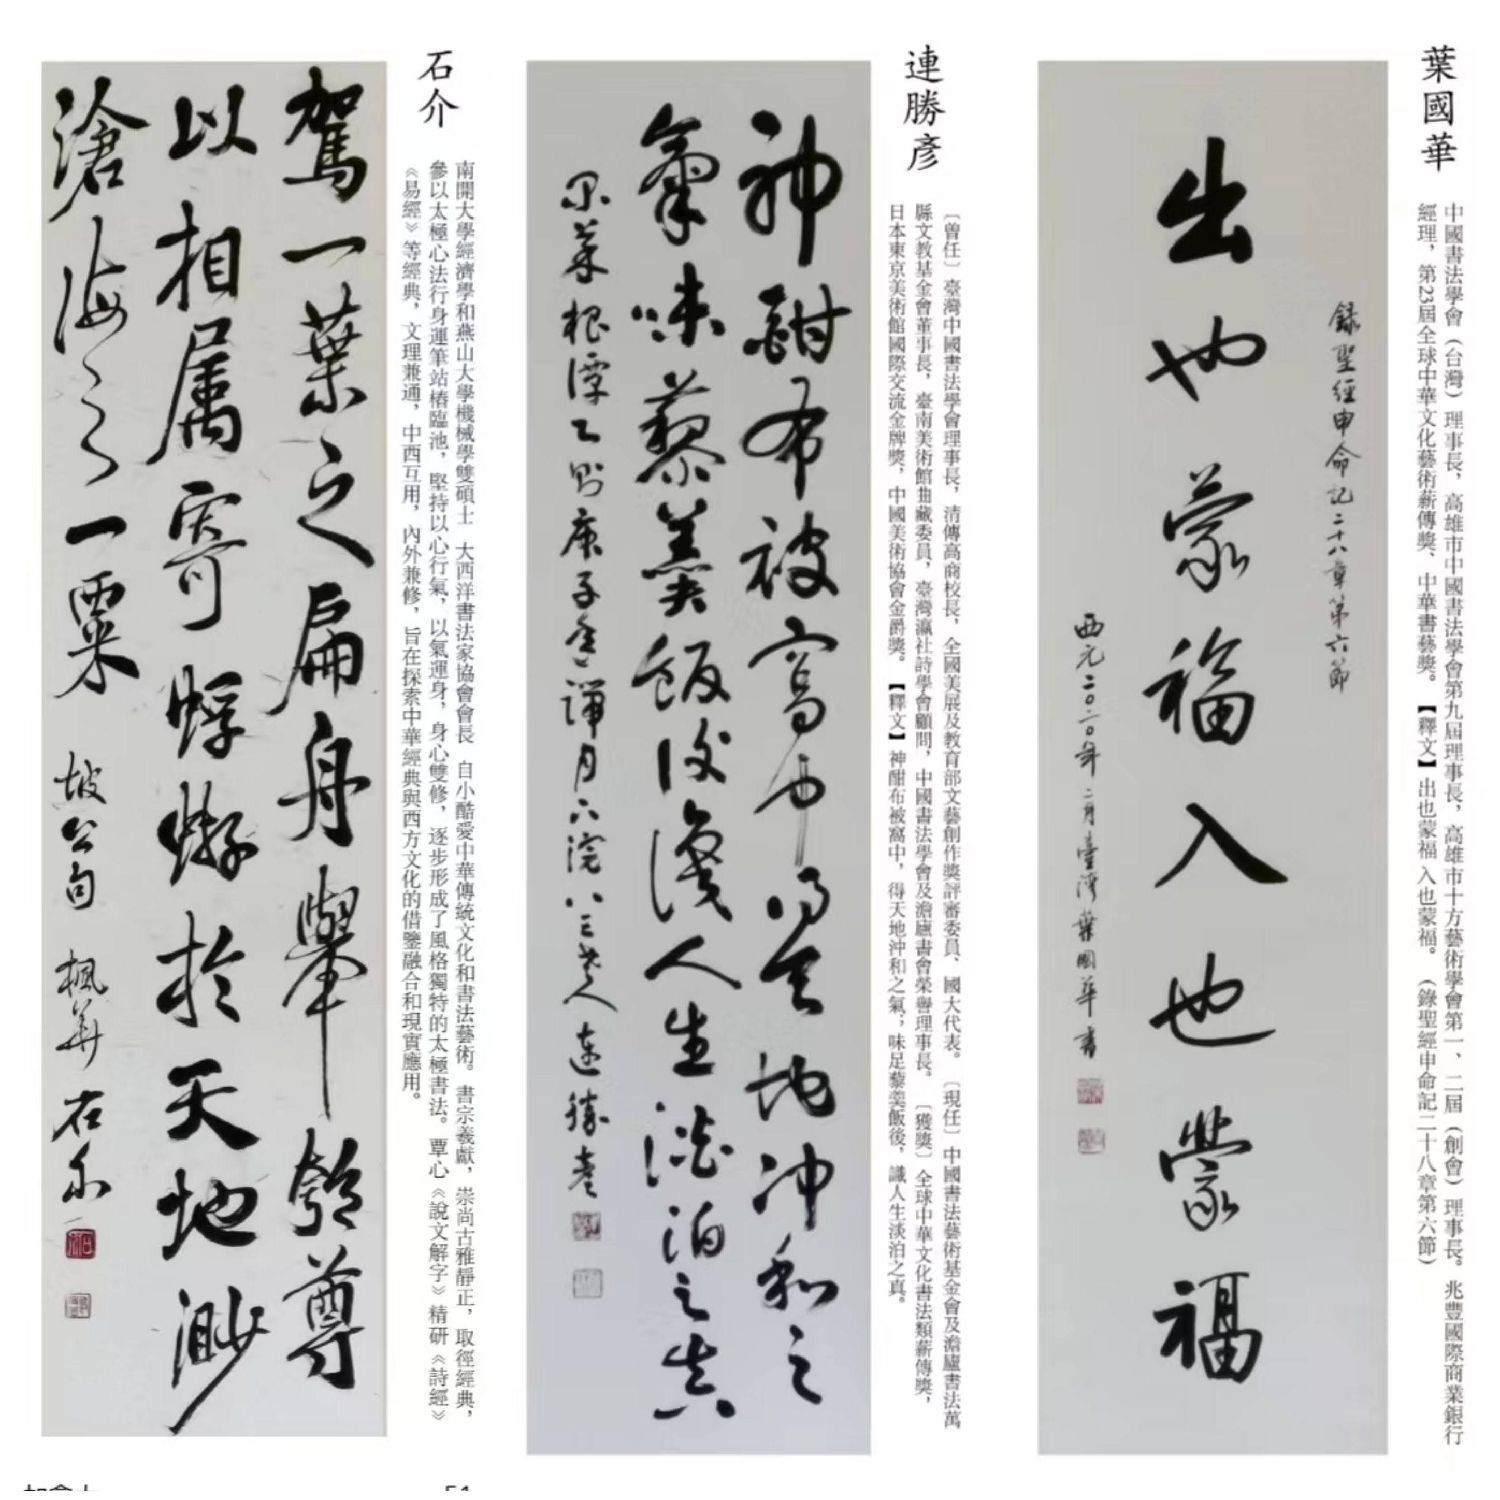 葉國華
中國書法學會（台灣）理事長，高雄市中國書法學會第九屆理事長，高雄市十方藝術學會第一、二屆（創會）理事長。兆豐國際商業銀行
經理，第23屆全球中華文化藝術薪傳獎、中華書藝獎。【釋文】出也蒙福 入也蒙福。（錄聖經申命記二十八章第六節）
錄聖經申命記二十八章第六節
出也蒙福入也蒙福
西元二〇二〇年二月臺灣葉國華書
連勝彥
〔曾任〕臺灣中國書法學會理事長，清傳高商校長，全國美展及教育部文藝創作獎評審委員、國大代表。〔現任〕中國書法藝術基金會及澹廬書法萬
縣文教基金會董事長，臺南美術館典藏委員，臺灣瀛社詩學會顧問，中國書法學會及澹廬書會榮譽理事長。〔獲獎〕全球中華文化書法類薪傳獎，
日本東京美術館國際交流金牌獎，中國美術協會金爵獎。【釋文】神酣布被窩中，得天地沖和之氣；味足藜羹飯後，識人生淡泊之真。
神酣布被窩中得天地冲和之
氣味藜羹飯後識人生澹泊之真
菜根譚 庚子 禪月 八三老人連勝彥
石介
南開大學經濟學和燕山大學機械學雙碩士 大西洋書法家協會會長 自小酷愛中華傳統文化和書法藝術。書宗羲獻，崇尚古雅靜正，取徑經典，
參以太極心法行身運筆站樁臨池，堅持以心行氣，以氣運身，身心雙修，逐步形成了風格獨特的太極書法。覃心《說文解字》精研《詩經》
《易經》等經典，文理兼通，中西互用，內外兼修，旨在探索中華經典與西方文化的借鑒融合和現實應用。
駕一葉之扁舟舉匏尊
以相属寄蜉蝣於天地渺
滄海之一粟
坡公句 楓華 石介
51